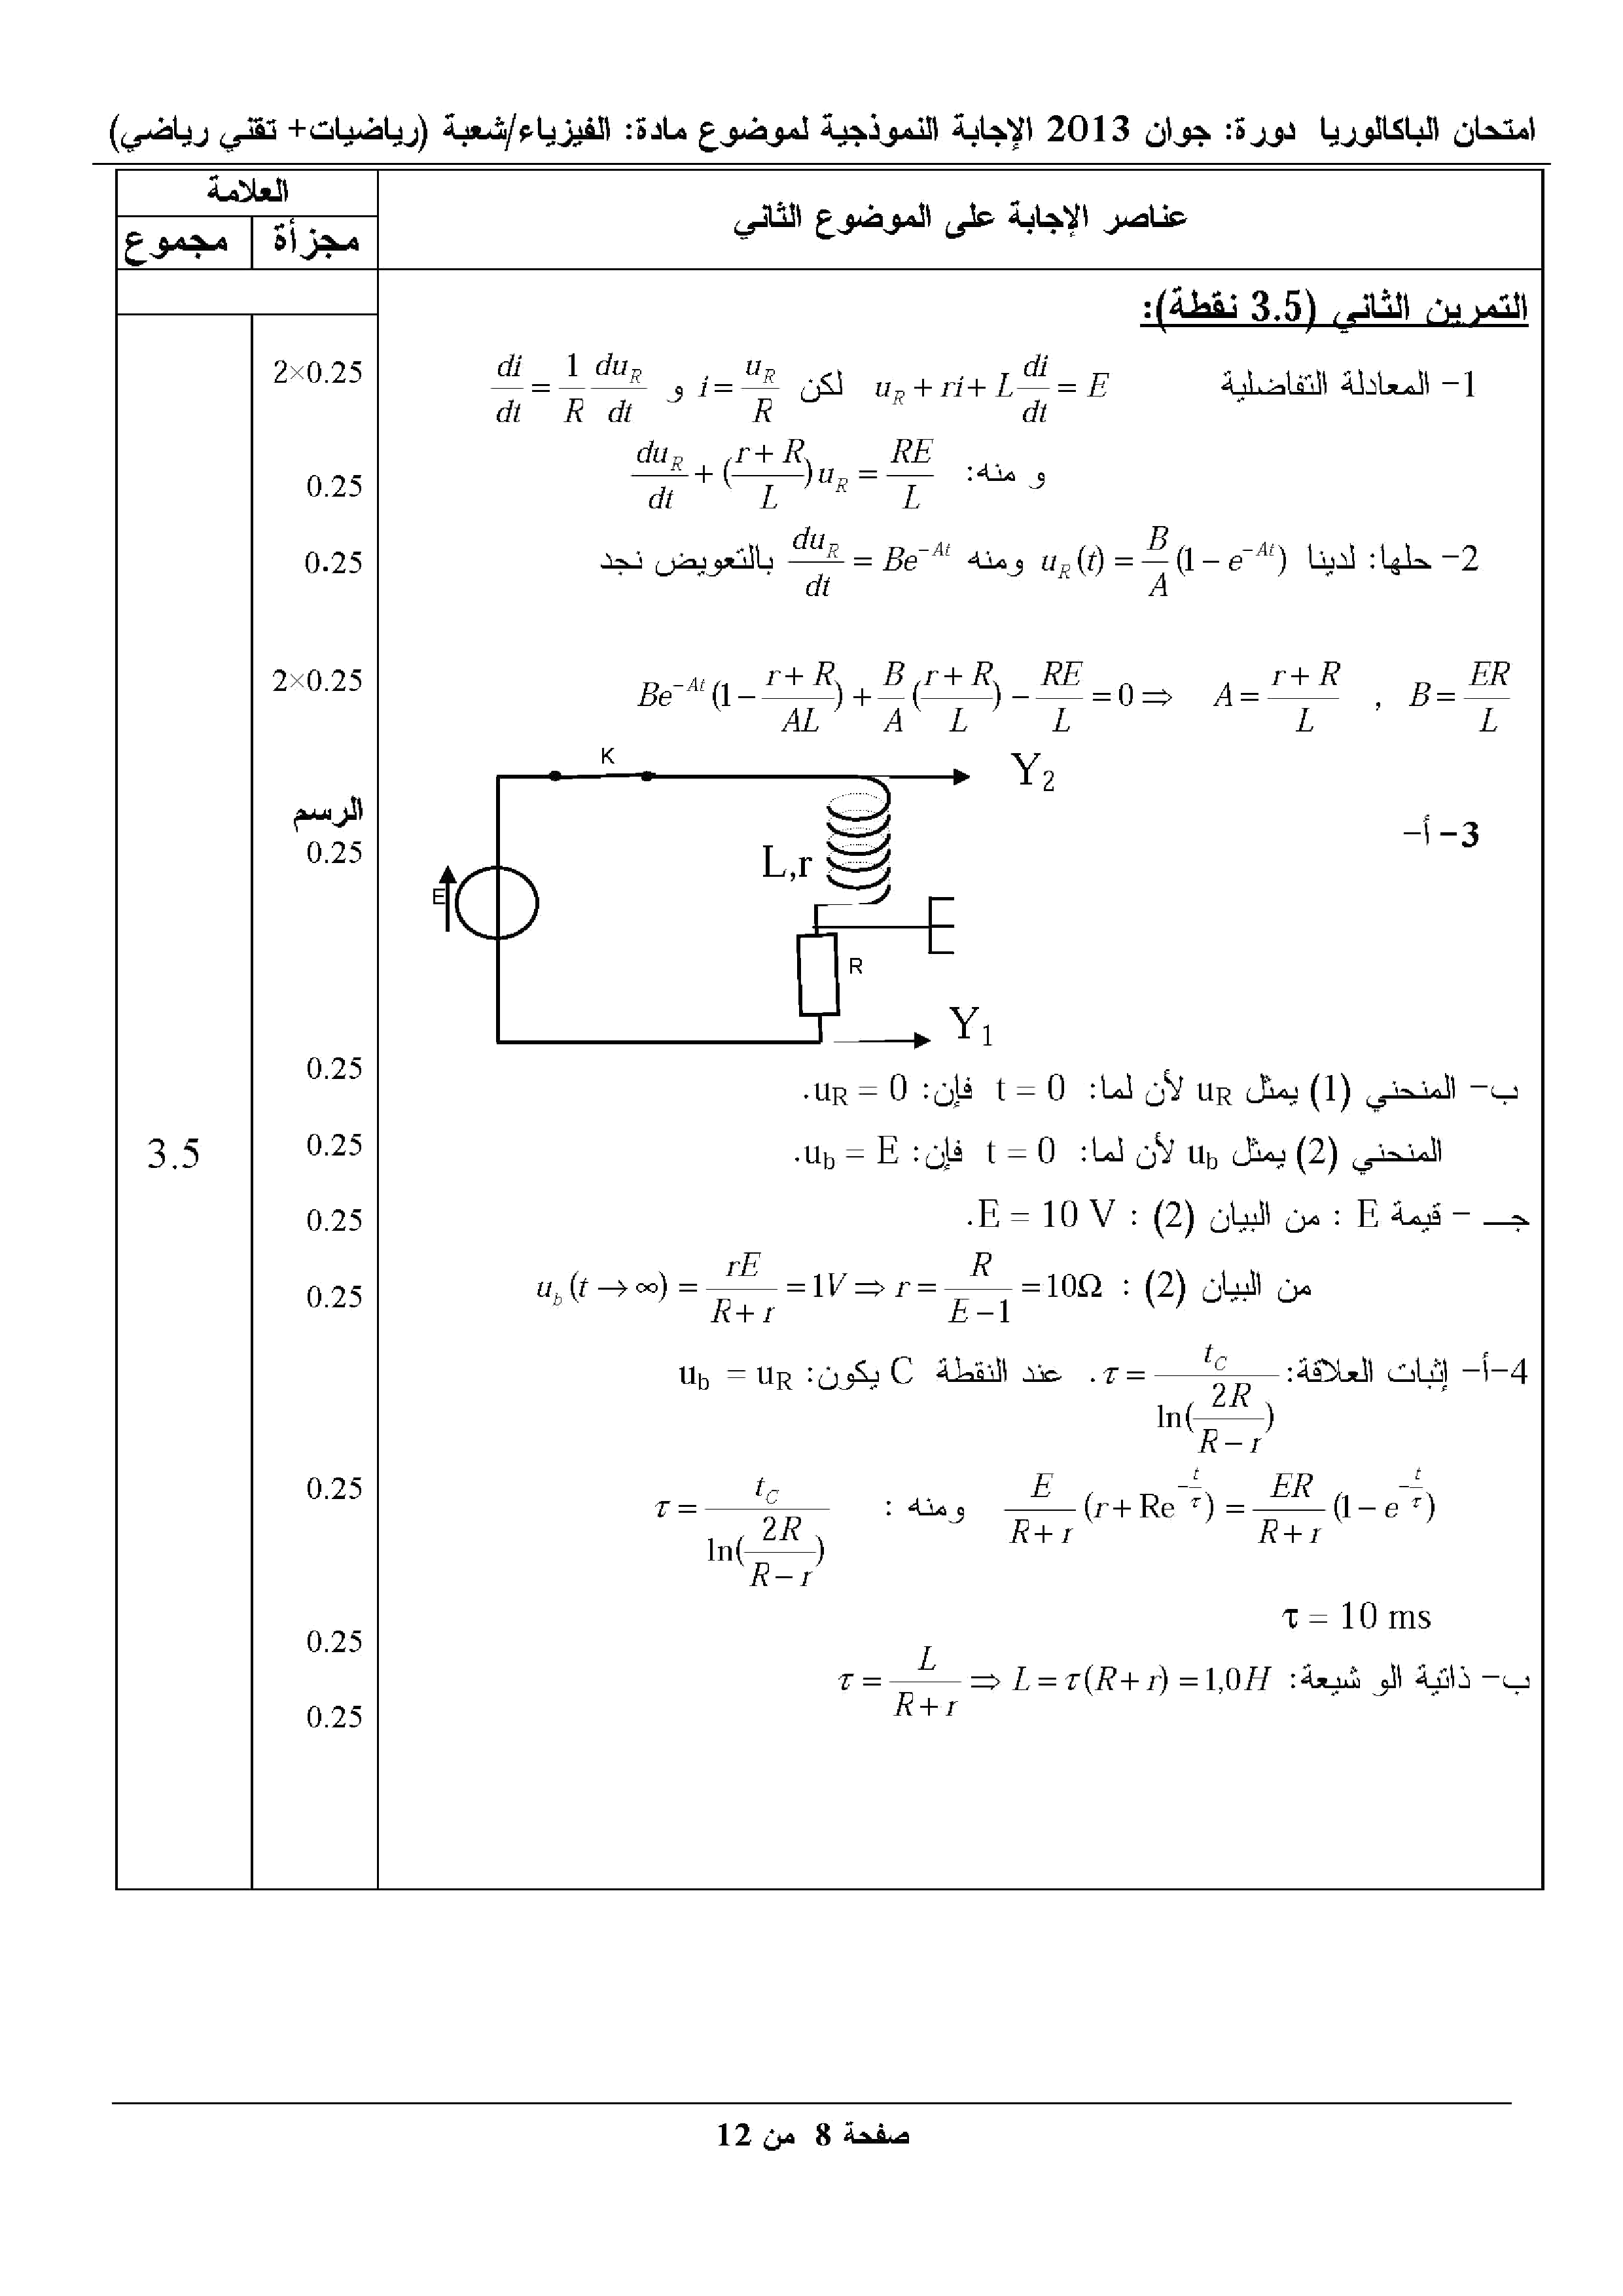 امتحان الباكالوريا دورة: جوان 2013 الإجابة النموذجية لموضوع مادة: الفيزياء/شعبة (رياضيات+ تقني رياضي)
عناصر الإجابة على الموضوع الثاني
العلامة
مجزأة مجموع
التمرين الثاني (3.5 نقطة):
1- المعادلة التفاضلية u_R + ri + L di/dt = E لكن i = u_R/R و di/dt = 1/R du_R/dt 2×0.25
و منه: du_R/dt + ((r+R)/L)u_R = RE/L 0.25
2- حلها: لدينا u_R(t) = B/A (1 − e^{−At}) ومنه du_R/dt = Be^{−At} بالتعويض نجد 0.25
Be^{−At}(1 − (r+R)/AL) + B/A ((r+R)/L) − RE/L = 0 ⇒ A = (r+R)/L , B = ER/L 2×0.25
3- أ-
الرسم
0.25
K
Y₂
L,r
E
R
Y₁
ب- المنحني (1) يمثل u_R لأن لما: t = 0 فإن: u_R = 0. 0.25
المنحني (2) يمثل u_b لأن لما: t = 0 فإن: u_b = E. 0.25
3.5
جـ - قيمة E : من البيان (2) : E = 10 V. 0.25
من البيان (2) : u_b(t → ∞) = rE/(R+r) = 1V ⇒ r = R/(E−1) = 10Ω 0.25
4-أ- إثبات العلاقة: τ = t_C / ln(2R/(R−r)) . عند النقطة C يكون: u_b = u_R
E/(R+r) (r + Re^{−t/τ}) = ER/(R+r) (1 − e^{−t/τ}) ومنه : τ = t_C / ln(2R/(R−r)) 0.25
τ = 10 ms 0.25
ب- ذاتية الو شيعة: τ = L/(R+r) ⇒ L = τ(R+r) = 1,0H 0.25
صفحة 8 من 12